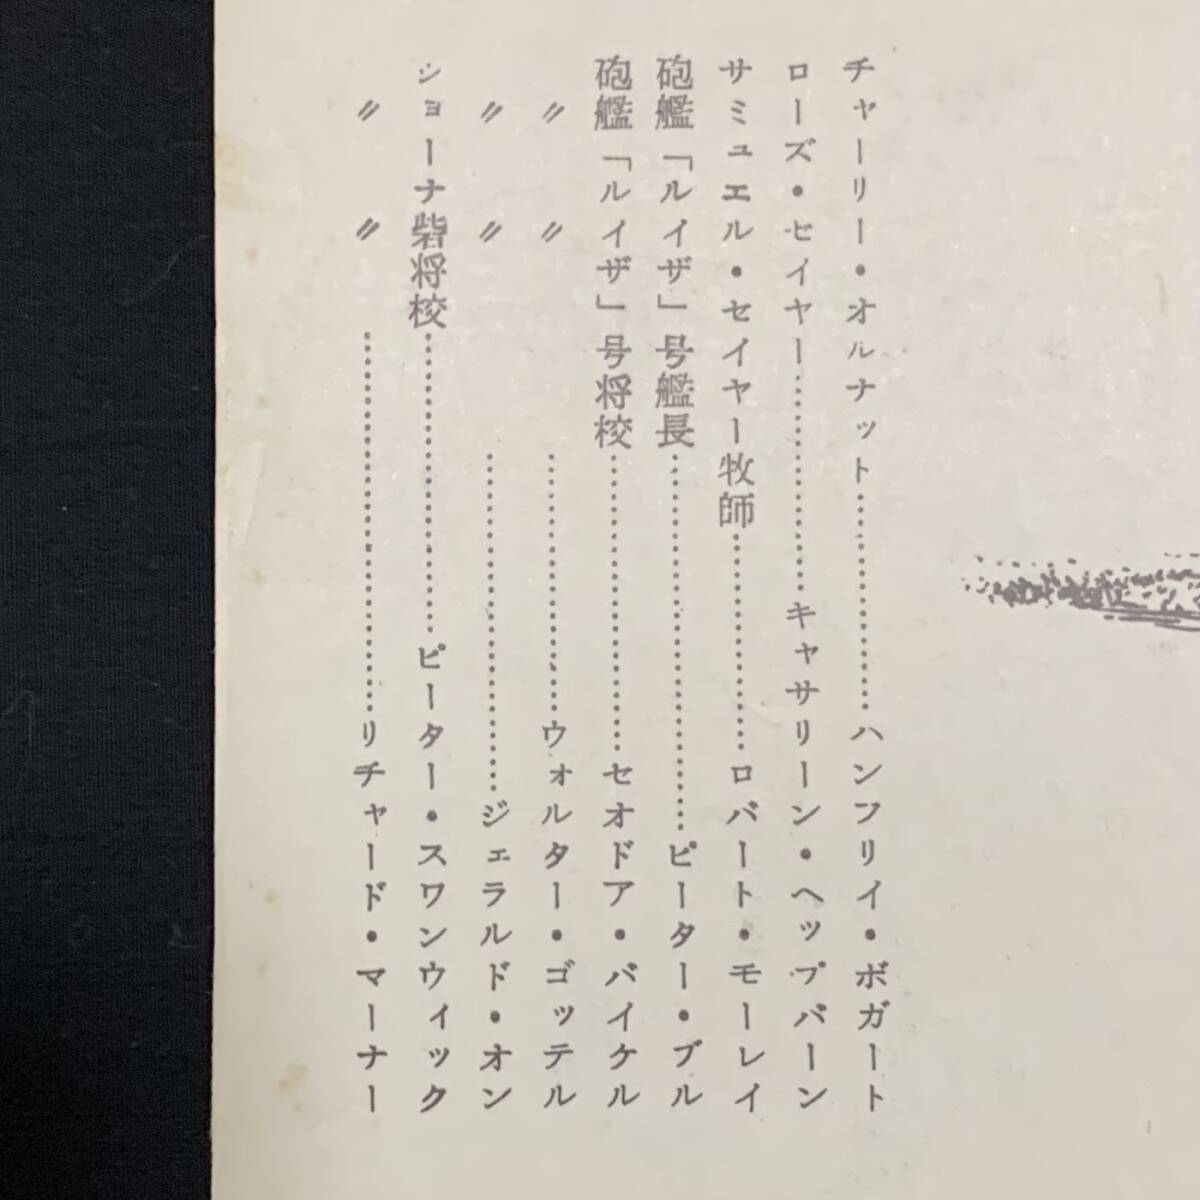 チャーリー・オルナット……………ハンフリイ・ボガート
ローズ・セイヤー……………キャサリーン・ヘップバーン
サミュエル・セイヤー牧師……………ロバート・モーレイ
砲艦「ルイザ」号艦長……………ピーター・ブル
砲艦「ルイザ」号将校……………セオドア・バイケル
〃　〃……………ウォルター・ゴッテル
〃　〃……………ジェラルド・オン
ショーナ砦将校……………ピーター・スワンウィック
〃　〃……………リチャード・マーナー